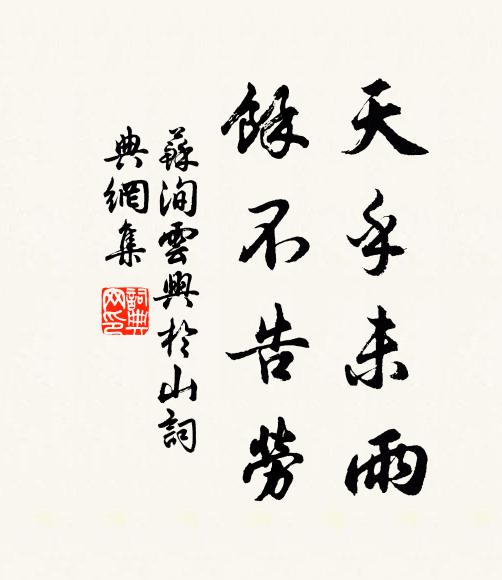 天乎未雨
餘不告勞
蘇洵雲興於山詞
典網集
詞典
网印